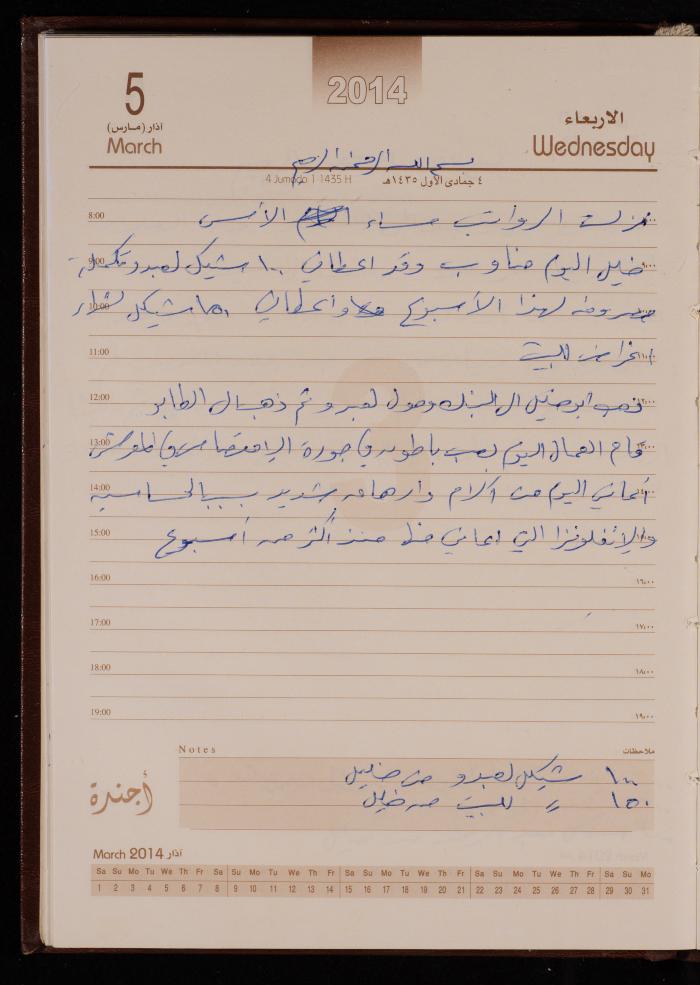 2014
5
آذار (مارس)
March
الاربعاء
Wednesday
بسم الله الرحمن الرحيم
4 Jumada I 1435 H
٤ جمادى الأول ١٤٣٥هـ
نزلت الرواتب مساء الأمس
8:00
خليل اليوم مناوب وقد اعطاني ١٠٠ شيكل لعبدو تكملة
9:00
مصروفه لهذا الأسبوع واعطاني ١٥٠ شيكل لشراء
10:00
اغراض للبيت
11:00
ذهب ابو خليل الى البنك وحول لعبدو ثم ذهب الى الطابو
12:00
قام العمال اليوم بصب باطون في جورة
13:00
أعاني اليوم من آلام وارهاق شديد بسبب الحساسية
14:00
والإنفلونزا التي اعاني منها منذ أكثر من أسبوع
15:00
16:00 ١٦،٠٠
17:00 ١٧،٠٠
18:00 ١٨،٠٠
19:00 ١٩،٠٠
Notes ملاحظات
١٠٠ شيكل لعبدو من خليل
١٥٠ " للبيت من خليل
أجندة
March 2014 آذار
Sa Su Mo Tu We Th Fr Sa Su Mo Tu We Th Fr Sa Su Mo Tu We Th Fr Sa Su Mo Tu We Th Fr Sa Su Mo
1 2 3 4 5 6 7 8 9 10 11 12 13 14 15 16 17 18 19 20 21 22 23 24 25 26 27 28 29 30 31